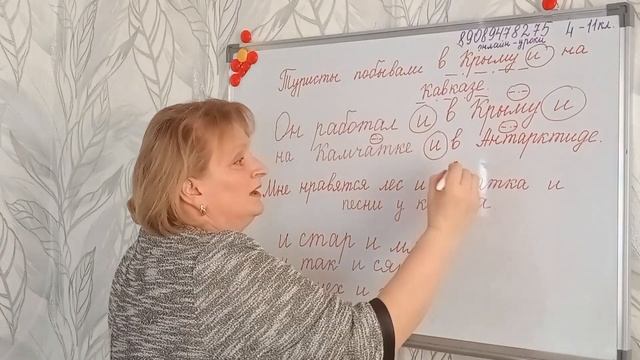 89089478275 4-11кл.
онлайн-уроки
Туристы побывали в Крыму и на
Кавказе.
Он работал и в Крыму и
на Камчатке и в Антарктиде.
Мне нравятся лес и и
песни у
и стар и
и так и
и